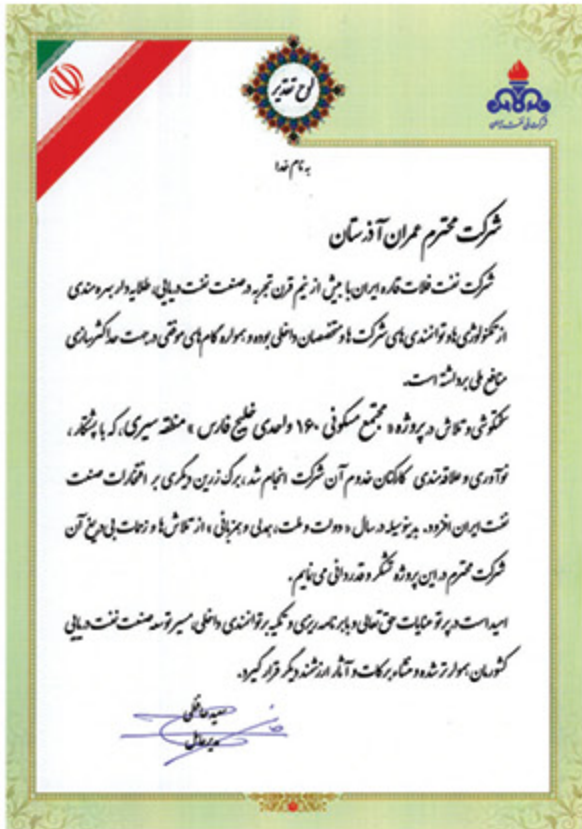 لوح تقدیر
شرکت ملی نفت ایران
به نام خدا
شرکت محترم عمران آذرستان
شرکت نفت فلات قاره ایران با بیش از نیم قرن تجربه در صنعت نفت دریایی، طلایه‌دار بهره‌مندی
از تکنولوژی‌ها و توانمندی‌های شرکت‌ها و متخصصان داخلی بوده و همواره گام‌های موفقی در جهت حداکثرسازی
منافع ملی برداشته است.
سختکوشی و تلاش در پروژه « مجتمع مسکونی ۱۶۰ واحدی خلیج فارس » منطقه سیری، که با پشتکار ،
نوآوری و علاقه‌مندی کارکنان خدوم آن شرکت انجام شد، برگ زرین دیگری بر افتخارات صنعت
نفت ایران افزود. بدینوسیله در سال « دولت و ملت، همدلی و همزبانی » از تلاش‌ها و زحمات بی‌دریغ آن
شرکت محترم در این پروژه تشکر و قدردانی می‌نمایم.
امید است در پرتو عنایات حق تعالی و با برنامه‌ریزی و تکیه بر توانمندی داخلی، مسیر توسعه صنعت نفت دریایی
کشورمان هموارتر شده و منشاء برکات و آثار ارزشمند دیگر قرار گیرد.
سعید حافظی
مدیرعامل